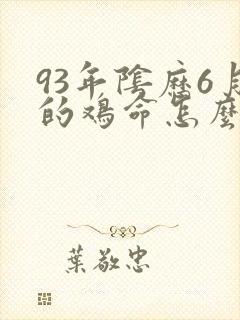 93年陰歷6月
的鴻命怎麼
葉敬忠